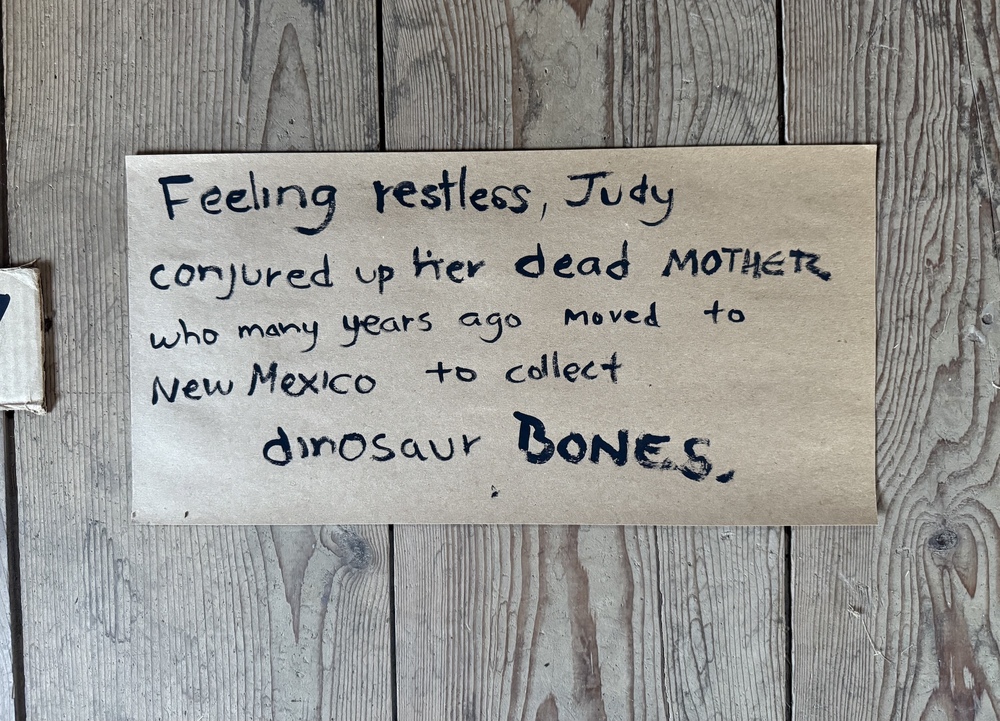 Feeling restless, Judy
conjured up her dead MOTHER
who many years ago moved to
New Mexico to collect
dinosaur BONES.